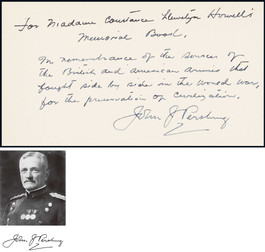 For Madame Constance Llewelyn Howell's
Memorial Book.
In remembrance of the services of
the British and American armies that
fought side by side in the World War,
for the preservation of civilization.
John J Pershing
John J Pershing